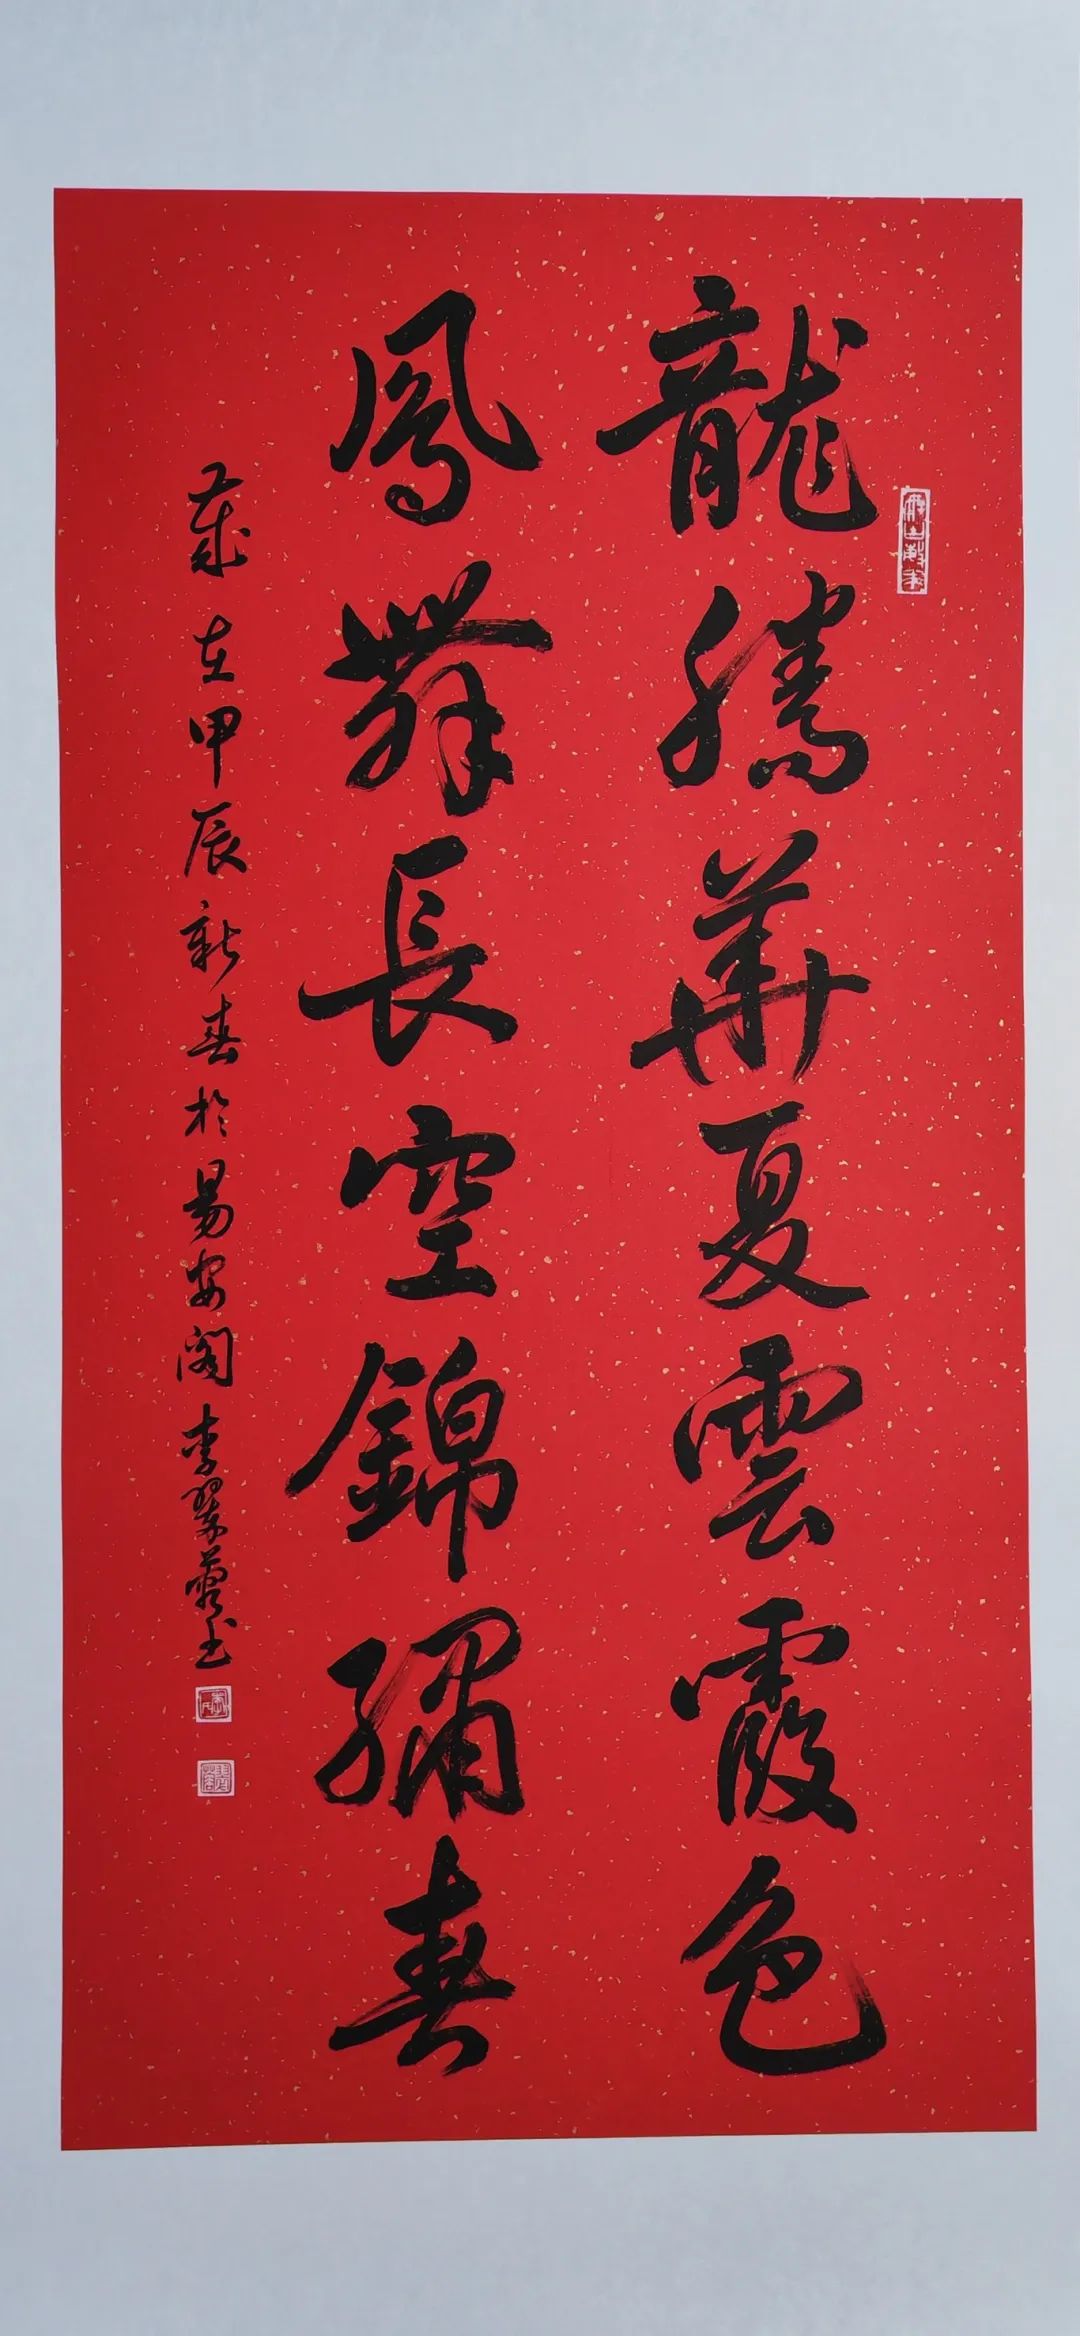 龍騰華夏雲霞色
鳳舞長空錦繡春
歲在甲辰新春於易安閣李翠蓉書